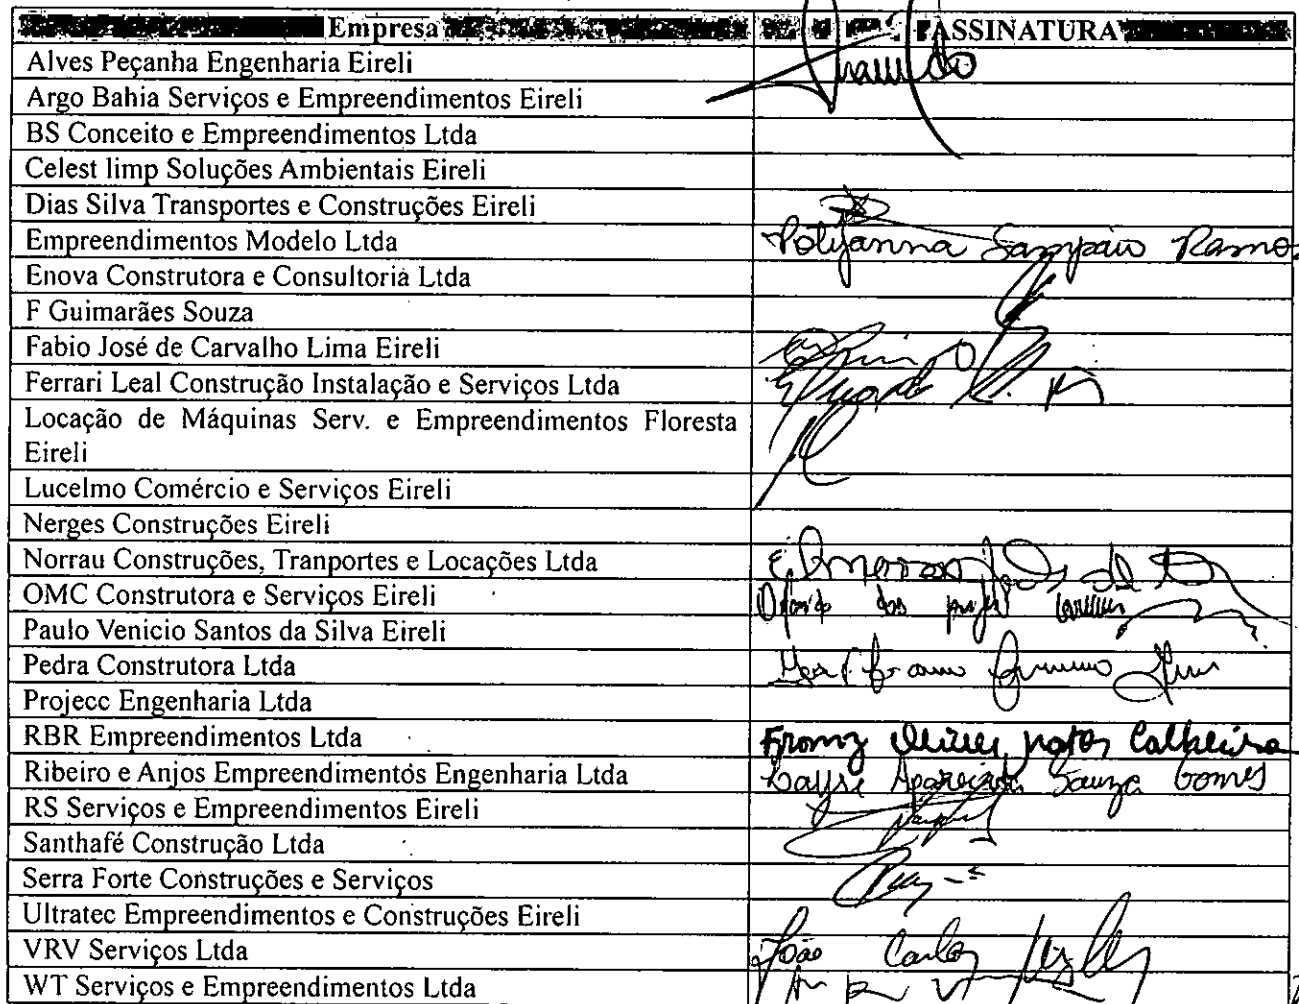 Empresa ASSINATURA
Alves Peçanha Engenharia Eireli
Argo Bahia Serviços e Empreendimentos Eireli
BS Conceito e Empreendimentos Ltda
Celest limp Soluções Ambientais Eireli
Dias Silva Transportes e Construções Eireli
Empreendimentos Modelo Ltda Polyanna Sampaio Ramos
Enova Construtora e Consultoria Ltda
F Guimarães Souza
Fabio José de Carvalho Lima Eireli
Ferrari Leal Construção Instalação e Serviços Ltda
Locação de Máquinas Serv. e Empreendimentos Floresta
Eireli
Lucelmo Comércio e Serviços Eireli
Nerges Construções Eireli
Norrau Construções, Tranportes e Locações Ltda
OMC Construtora e Serviços Eireli
Paulo Venicio Santos da Silva Eireli
Pedra Construtora Ltda
Projecc Engenharia Ltda
RBR Empreendimentos Ltda
Ribeiro e Anjos Empreendimentos Engenharia Ltda Souza Gomes
RS Serviços e Empreendimentos Eireli
Santhafé Construção Ltda
Serra Forte Construções e Serviços
Ultratec Empreendimentos e Construções Eireli
VRV Serviços Ltda João Carlos
WT Serviços e Empreendimentos Ltda